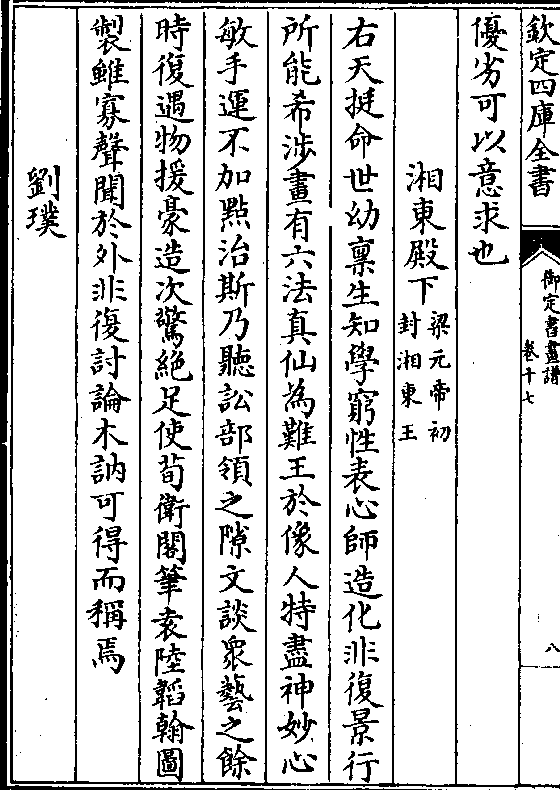 欽定四庫全書
御定書畫譜
卷十七
八
優劣可以意求也
湘東殿下梁元帝初
封湘東王
右天挺命世幼稟生知學窮性表心師造化非復景行
所能希涉畫有六法真仙為難王於像人特盡神妙心
敏手運不加點治斯乃聽訟部領之隙文談衆藝之餘
時復遇物援豪造次驚絕足使荀衛閣筆袁陸韜翰圖
製雖寡聲聞於外非復討論木訥可得而稱焉
劉璞